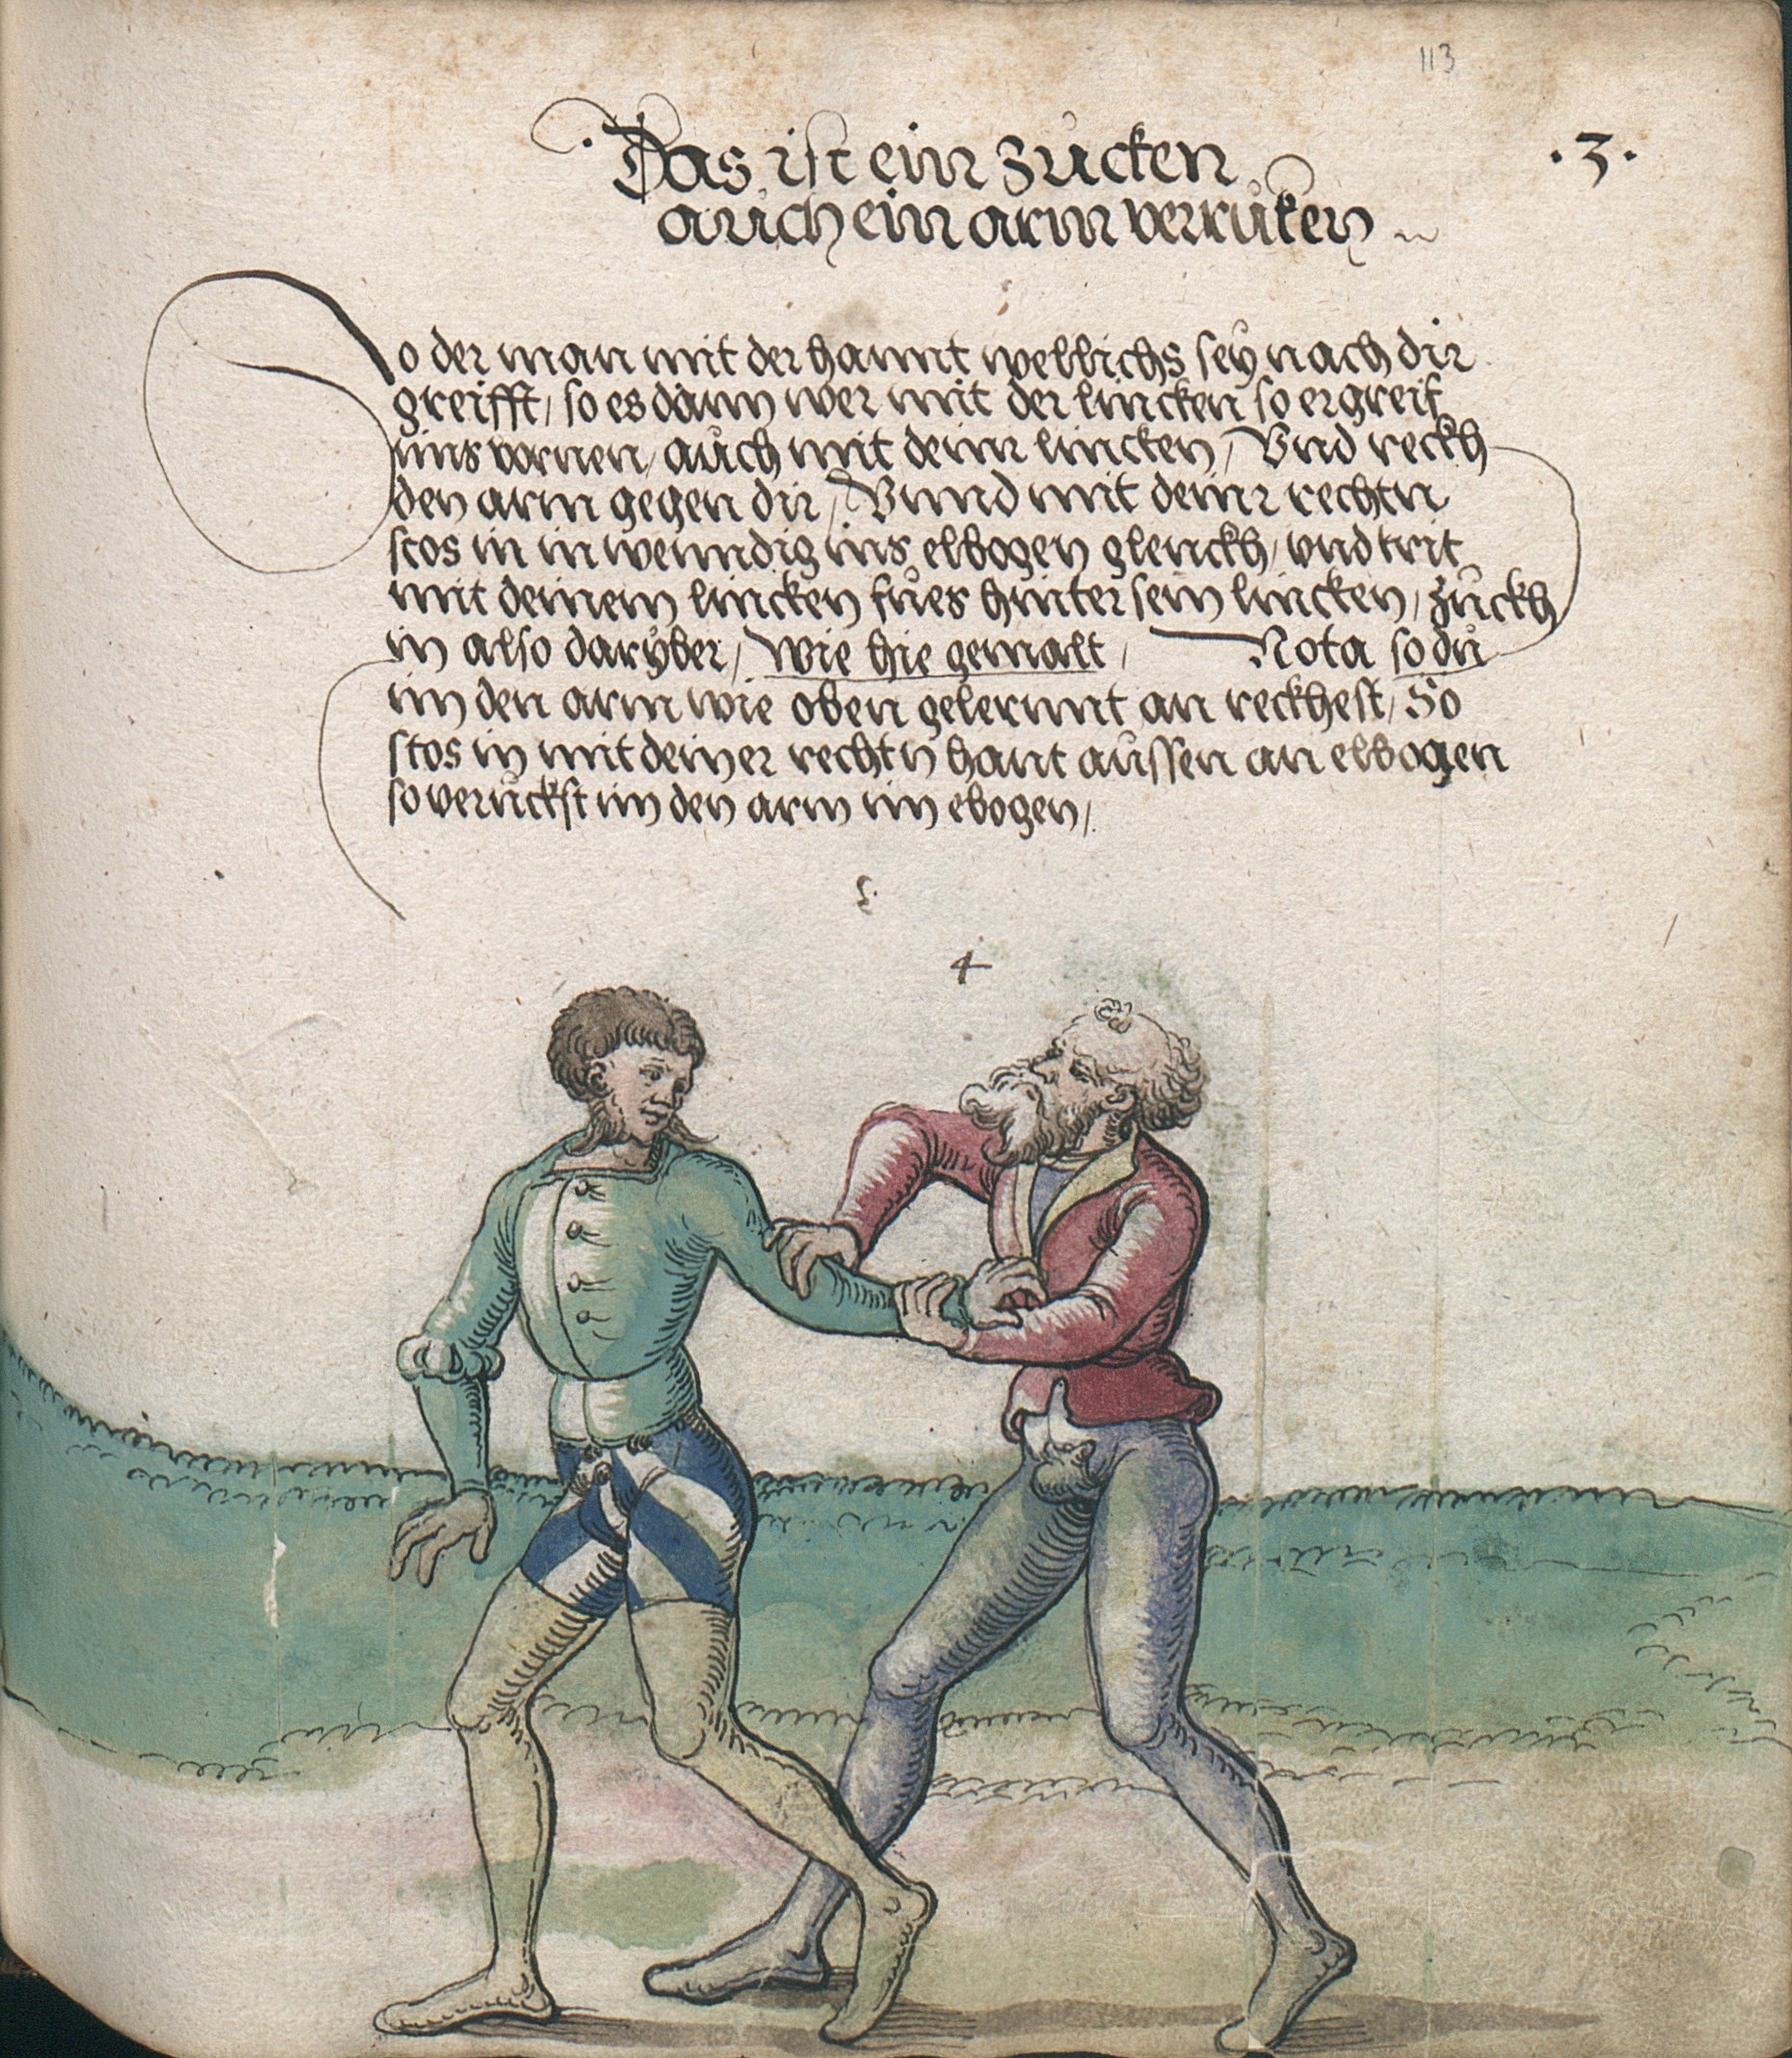 113
.3.
Das ist ein zucken
auch ein arm verruken
So der man mit der hannt wellichs seӱ nach dir
greifft, so es dann wer mit der lincken so ergreif
ims vornen, auch mit deinr lincken, Vnd reckh
den arm gegen dir, Vnnd mit deinr rechtn
stos in inwenndig ins elbogen glenckh, vnd trit
mit deinem lincken fues hinter sein lincken, zuckh
in also darÿber, Wie hie gemalt, Nota so du
im den arm wie oben gelernnt an reckhest, So
stos in mit deiner rechtn hant aussen an elbogen
so veruckst im den arm im ebogen,
4